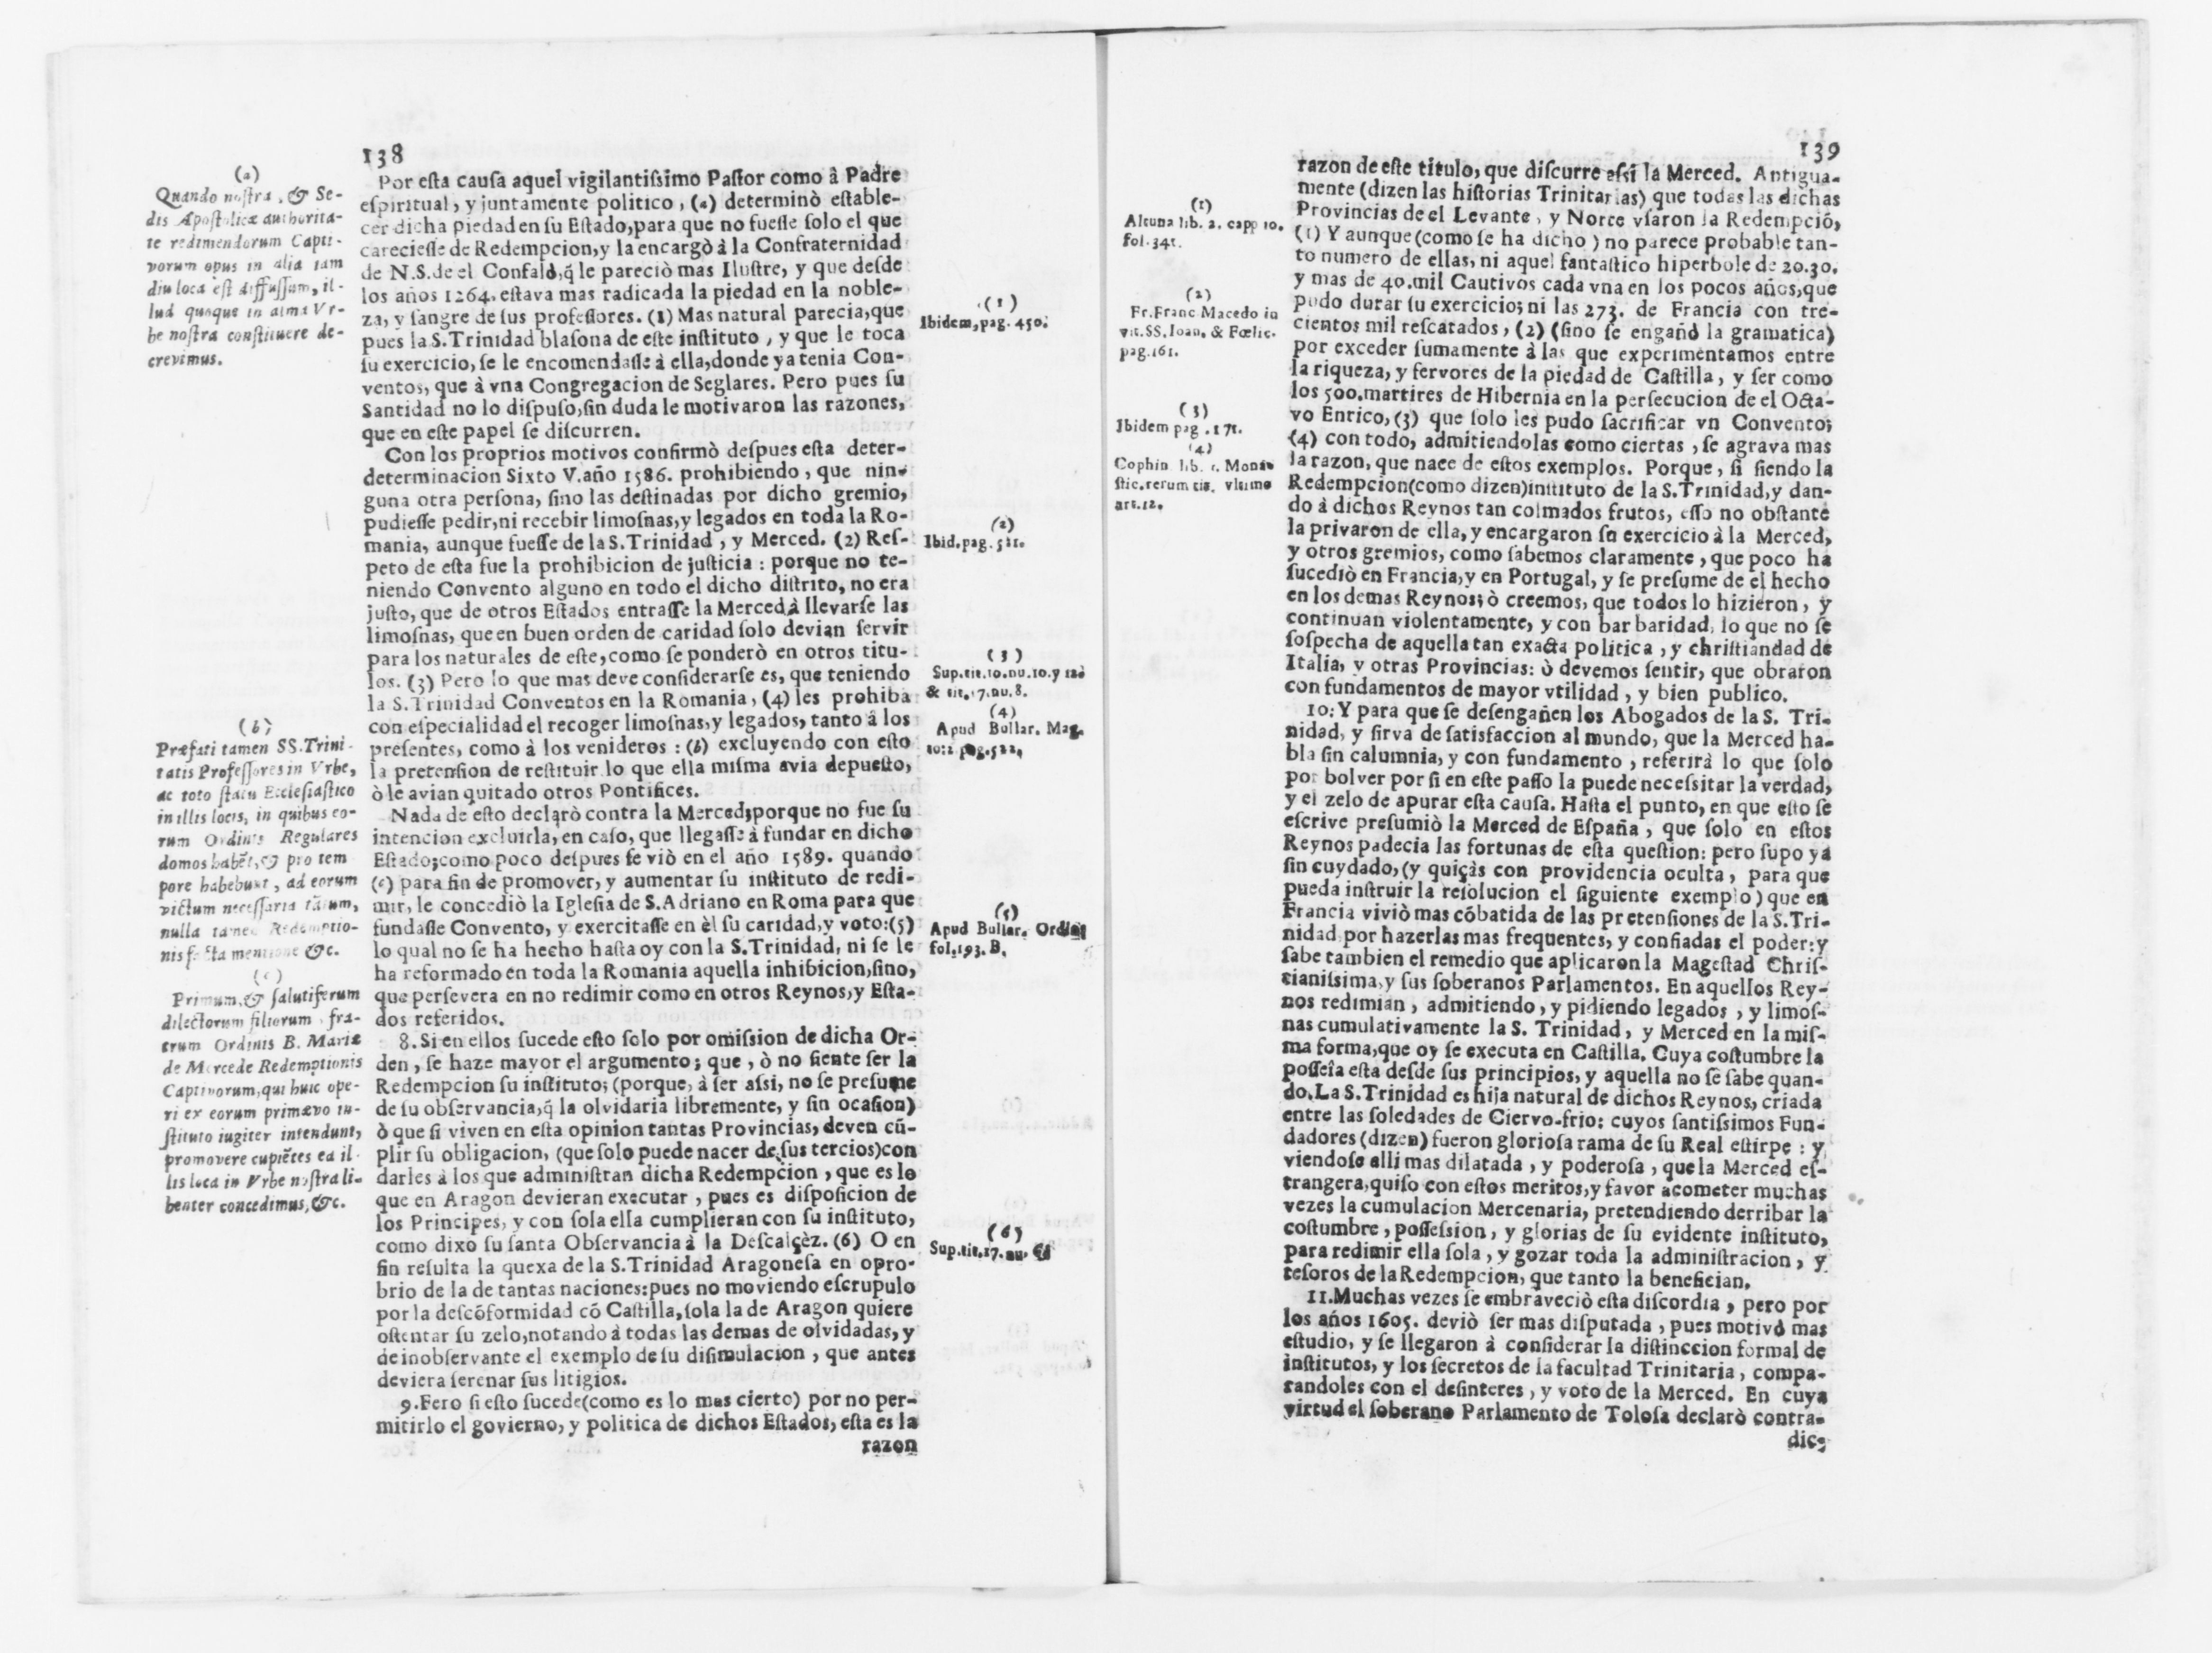 138
(a)
Quando nostra, & Se-
dis Apostolicæ authorita-
te redimendorum Capti-
vorum opus in alia iam
diu loca est diffussum, il-
lud quoque in alma Vr-
be nostra constituere de-
crevimus.
(b)
Præfati tamen SS. Trini-
tatis Professores in Vrbe,
ac toto statu Ecclesiastico
in illis locis, in quibus eo-
rum Ordinis Regulares
domos habẽt, & pro tem
pore habebunt, ad eorum
victum necessaria tãtum,
nulla tamen Redemptio-
nis facta mentione &c.
(c)
Primum, & salutiferum
dilectorum filiorum fra-
trum Ordinis B. Mariæ
de Mercede Redemptionis
Captivorum, qui huic ope-
ri ex eorum primævo in-
stituto iugiter intendunt,
promovere cupiẽtes ea il-
lis loca in Vrbe nostra li-
benter concedimus, &c.
Por esta causa aquel vigilantissimo Pastor como à Padre
espiritual, y juntamente politico, (a) determinò estable-
cer dicha piedad en su Estado, para que no fuesse solo el que
careciesse de Redempcion, y la encargò à la Confraternidad
de N.S. de el Confalõ, q̃ le pareciò mas Ilustre, y que desde
los años 1264. estava mas radicada la piedad en la noble-
za, y sangre de sus professores. (1) Mas natural parecia, que
pues la S. Trinidad blasona de este instituto, y que le toca
su exercicio, se le encomendasse à ella, donde ya tenia Con-
ventos, que à vna Congregacion de Seglares. Pero pues su
Santidad no lo dispuso, sin duda le motivaron las razones,
que en este papel se discurren.
Con los proprios motivos confirmò despues esta deter-
determinacion Sixto V. año 1586. prohibiendo, que nin-
guna otra persona, sino las destinadas por dicho gremio,
pudiesse pedir, ni recebir limosnas, y legados en toda la Ro-
mania, aunque fuesse de la S. Trinidad, y Merced. (2) Res-
peto de esta fue la prohibicion de justicia: porque no te-
niendo Convento alguno en todo el dicho distrito, no era
justo, que de otros Estados entrasse la Merced à llevarse las
limosnas, que en buen orden de caridad solo devian servir
para los naturales de este, como se ponderò en otros titu-
los. (3) Pero lo que mas deve considerarse es, que teniendo
la S. Trinidad Conventos en la Romania, (4) les prohiba
con especialidad el recoger limosnas, y legados, tanto á los
presentes, como à los venideros: (b) excluyendo con esto
la pretension de restituir lo que ella misma avia depuesto,
ò le avian quitado otros Pontifices.
Nada de esto declarò contra la Merced; porque no fue su
intencion excluirla, en caso, que llegasse à fundar en dicho
Estado; como poco despues se viò en el año 1589. quando
(c) para fin de promover, y aumentar su instituto de redi-
mir, le concediò la Iglesia de S. Adriano en Roma para que
fundasse Convento, y exercitasse en èl su caridad, y voto: (5)
lo qual no se ha hecho hasta oy con la S. Trinidad, ni se le
ha reformado en toda la Romania aquella inhibicion, sino,
que persevera en no redimir como en otros Reynos, y Esta-
dos referidos.
8. Si en ellos sucede esto solo por omission de dicha Or-
den, se haze mayor el argumento; que, ò no siente ser la
Redempcion su instituto; (porque, à ser assi, no se presume
de su observancia, q̃ la olvidaria libremente, y sin ocasion)
ò que si viven en esta opinion tantas Provincias, deven cũ-
plir su obligacion, (que solo puede nacer de sus tercios) con
darles à los que administran dicha Redempcion, que es lo
que en Aragon devieran executar, pues es disposicion de
los Principes, y con sola ella cumplieran con su instituto,
como dixo su santa Observancia à la Descalçèz. (6) O en
fin resulta la quexa de la S. Trinidad Aragonesa en opro-
brio de la de tantas naciones: pues no moviendo escrupulo
por la descõformidad cõ Castilla, sola la de Aragon quiere
ostentar su zelo, notando à todas las demas de olvidadas, y
de inobservante el exemplo de su disimulacion, que antes
deviera serenar sus litigios.
9. Pero si esto sucede (como es lo mas cierto) por no per-
mitirlo el govierno, y politica de dichos Estados, esta es la
razon
(1)
Ibidem, pag. 450.
(2)
Ibid. pag. 521.
(3)
Sup. tit. 10. nu. 10. y 12.
& tit. 17. nu. 8.
(4)
Apud Bullar. Mag.
to: 2 pag. 522.
(5)
Apud Bullar. Ordin
fol. 193. B.
(6)
Sup. tit. 17. nu.
139
(1)
Altuna lib. 2. capp 10.
fol. 341.
(2)
Fr. Franc Macedo in
vit. SS. Ioan. & Fœlic.
pag. 161.
(3)
Ibidem pag. 171.
(4)
Cophin lib. Mona-
stic. rerum tit. vltimo
art. 12.
razon de este titulo, que discurre assi la Merced. Antigua-
mente (dizen las historias Trinitarias) que todas las dichas
Provincias de el Levante, y Norte vsaron la Redempció,
(1) Y aunque (como se ha dicho) no parece probable tan-
to numero de ellas, ni aquel fantastico hiperbole de 20. 30.
y mas de 40. mil Cautivos cada vna en los pocos años, que
pudo durar su exercicio; ni las 273. de Francia con tre-
cientos mil rescatados, (2) (sino se engañó la gramatica)
por exceder sumamente à las que experimentamos entre
la riqueza, y fervores de la piedad de Castilla, y ser como
los 500. martires de Hibernia en la persecucion de el Octa-
vo Enrico, (3) que solo les pudo sacrificar vn Convento;
(4) con todo, admitiendolas como ciertas, se agrava mas
la razon, que nace de estos exemplos. Porque, si siendo la
Redempcion (como dizen) instituto de la S. Trinidad, y dan-
do à dichos Reynos tan colmados frutos, esso no obstante
la privaron de ella, y encargaron su exercicio à la Merced,
y otros gremios, como sabemos claramente, que poco ha
sucediò en Francia, y en Portugal, y se presume de el hecho
en los demas Reynos; ò creemos, que todos lo hizieron, y
continuan violentamente, y con barbaridad, lo que no se
sospecha de aquella tan exacta politica, y christiandad de
Italia, y otras Provincias: ò devemos sentir, que obraron
con fundamentos de mayor vtilidad, y bien publico.
10. Y para que se desengañen los Abogados de la S. Tri-
nidad, y sirva de satisfaccion al mundo, que la Merced ha-
bla sin calumnia, y con fundamento, referirà lo que solo
por bolver por si en este passo la puede necessitar la verdad,
y el zelo de apurar esta causa. Hasta el punto, en que esto se
escrive presumiò la Merced de España, que solo en estos
Reynos padecia las fortunas de esta question: pero supo ya
sin cuydado, (y quiçàs con providencia oculta, para que
pueda instruir la resolucion el siguiente exemplo) que en
Francia viviò mas cõbatida de las pretensiones de la S. Tri-
nidad, por hazerlas mas frequentes, y confiadas el poder: y
sabe tambien el remedio que aplicaron la Magestad Chris-
tianissima, y sus soberanos Parlamentos. En aquellos Rey-
nos redimian, admitiendo, y pidiendo legados, y limos-
nas cumulativamente la S. Trinidad, y Merced en la mis-
ma forma, que oy se executa en Castilla. Cuya costumbre la
posseîa esta desde sus principios, y aquella no se sabe quan-
do. La S. Trinidad es hija natural de dichos Reynos, criada
entre las soledades de Ciervo-frio: cuyos santissimos Fun-
dadores (dizen) fueron gloriosa rama de su Real estirpe: y
viendose alli mas dilatada, y poderosa, que la Merced es-
trangera, quiso con estos meritos, y favor acometer muchas
vezes la cumulacion Mercenaria, pretendiendo derribar la
costumbre, possession, y glorias de su evidente instituto,
para redimir ella sola, y gozar toda la administracion, y
tesoros de la Redempcion, que tanto la benefician.
11. Muchas vezes se embraveciò esta discordia, pero por
los años 1605. deviò ser mas disputada, pues motivó mas
estudio, y se llegaron à considerar la distinccion formal de
institutos, y los secretos de la facultad Trinitaria, compa-
randoles con el desinteres, y voto de la Merced. En cuya
virtud el soberano Parlamento de Tolosa declarò contra-
dic-